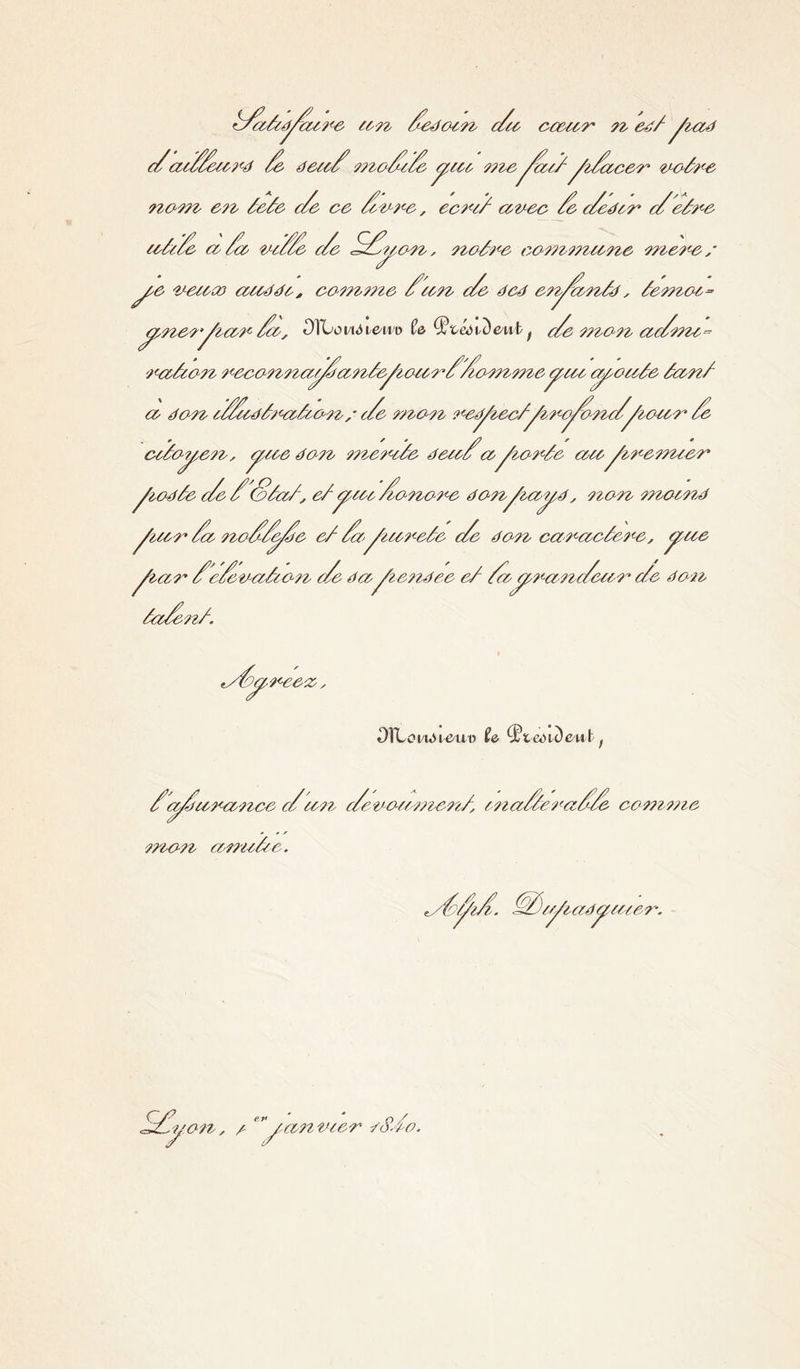 Satisfaire un besoin du cœur n'est pas
d'ailleurs le seul mobile qui me fait placer votre
nom en tête de ce livre, écrit avec le désir d'être
utile à la ville de Lyon, notre commune mère;
je veux aussi, comme l'un de ses enfants, témoi-
gner par là, Monsieur le Président, de mon admi-
ration reconnaissante pour l'homme qui ajoute tant
à son illustration; de mon respect profond pour le
citoyen, que son mérite seul a porté au premier
poste de l'État, et qui honore son pays, non moins
pur la noblesse et la pureté de son caractère, que
par l'élévation de sa pensée et la grandeur de son
talent.
Agréez,
Monsieur le Président,
l'assurance d'un dévoûment, inaltérable comme
mon amitié.
Alph. Dupasquier.
Lyon, 1er janvier 1840.